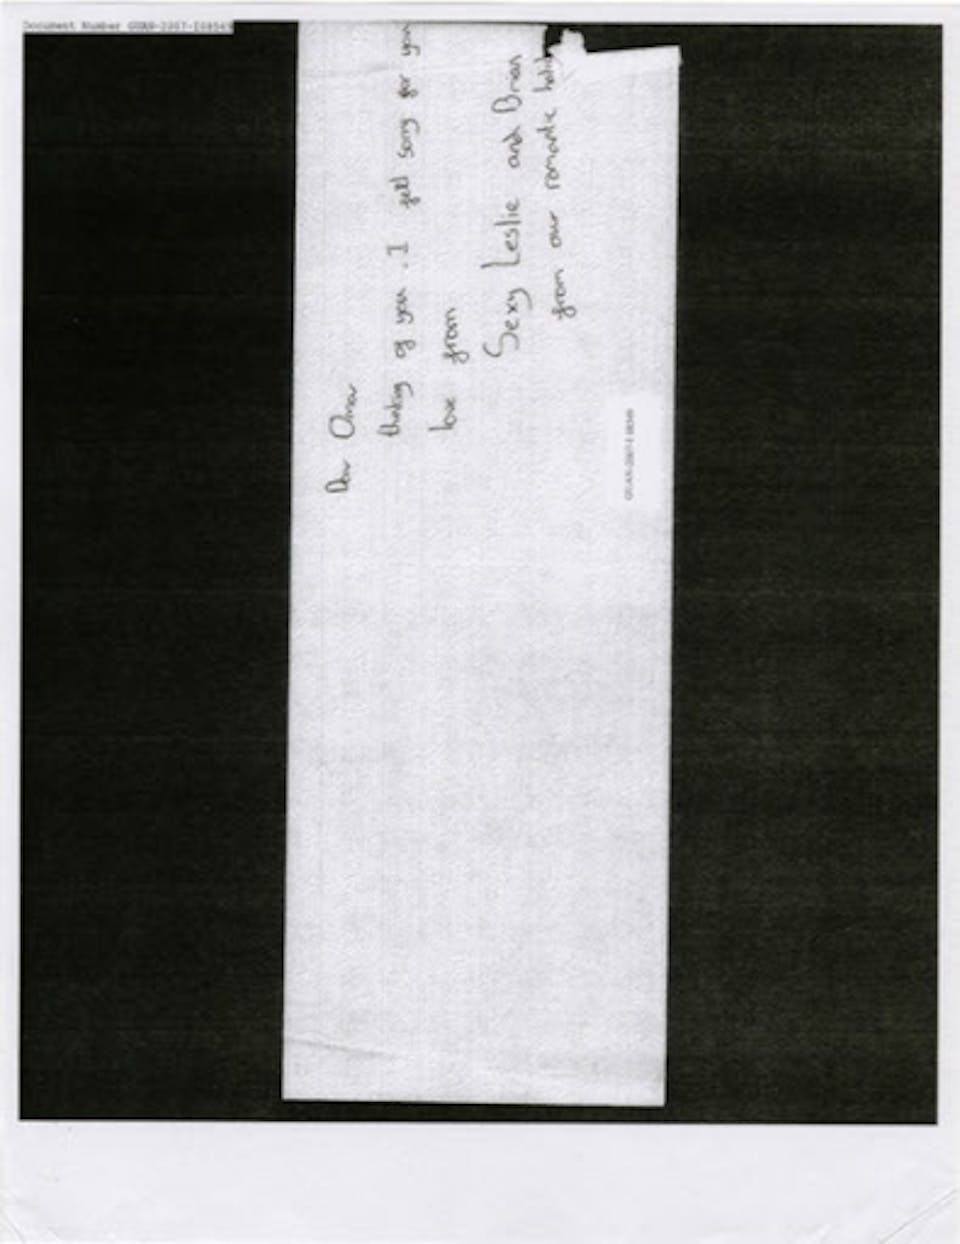 Document Number GUAN-2007-I08549
Dear Omar
thinking of you . I fell sorry for you
love from
Sexy Leslie and Brian
from our romantic